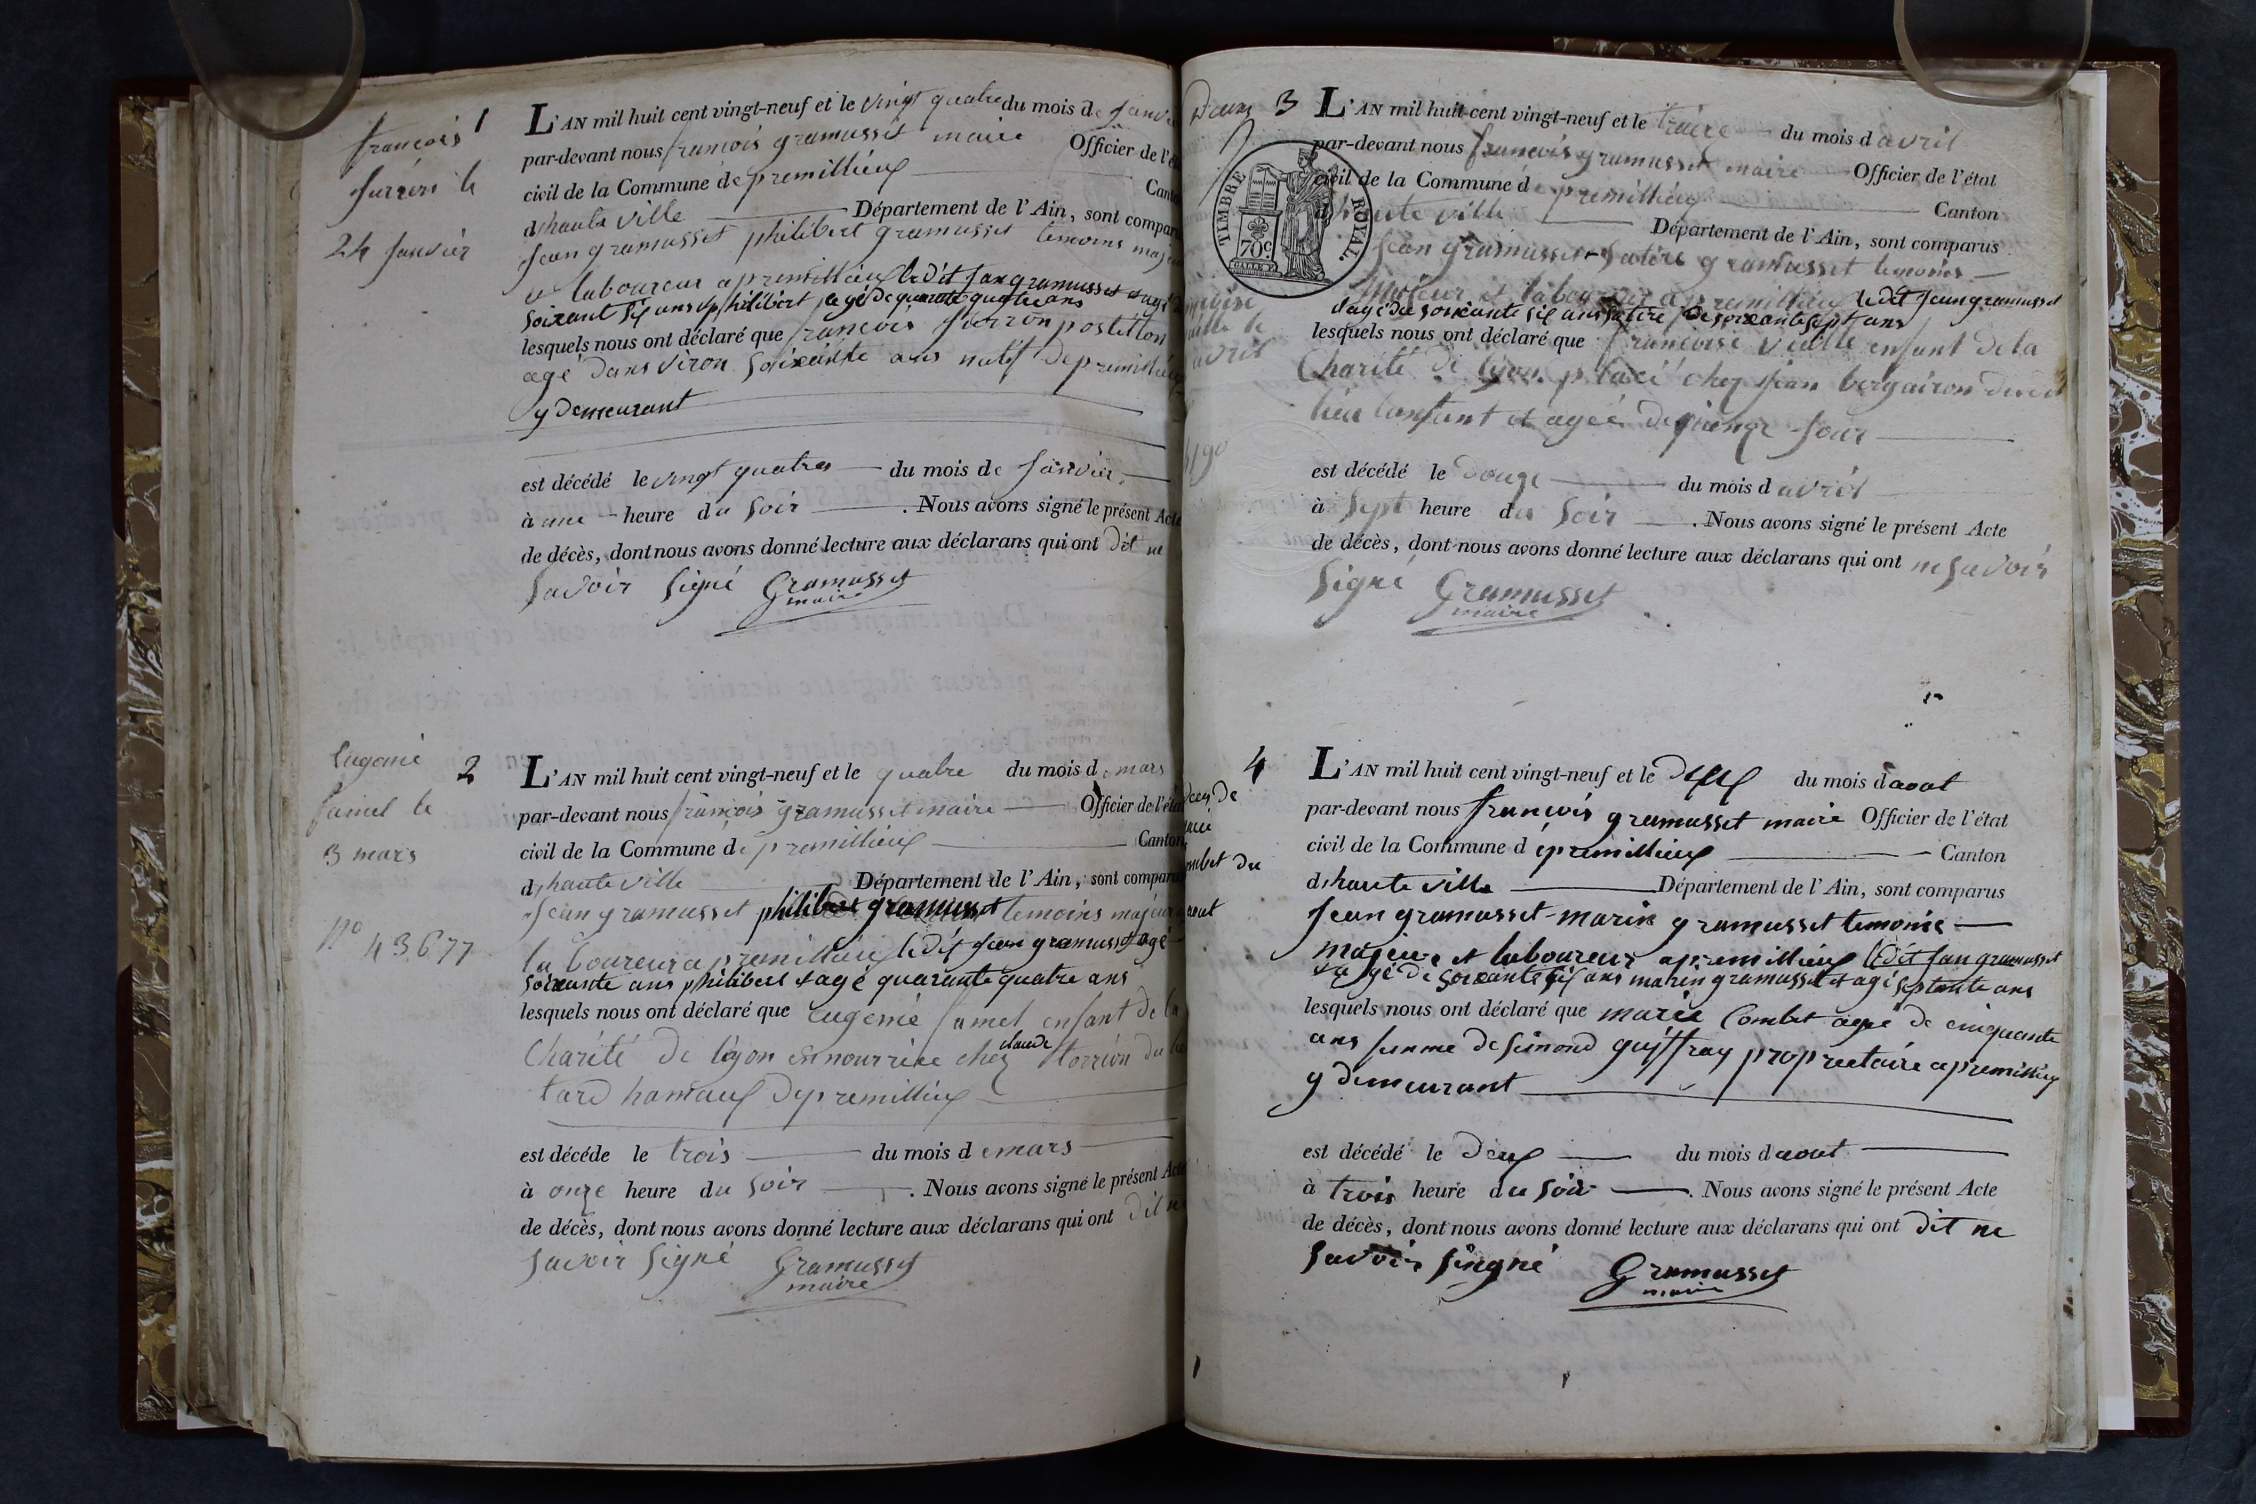 françois 1
furrin le
24 janvier
L'AN mil huit cent vingt-neuf et le vingt quatre du mois de janvi
par-devant nous françois gramusset maire Officier de l'é
civil de la Commune de premillieux Cant
dhaute ville Département de l'Ain, sont compar
jean gramusset philibert gramusset temoins maj
et laboureur a premillieux ledit jean gramusset agé
soixant six ans philibert agé de quarante quatre ans
lesquels nous ont déclaré que françois postillon
agé danviron soixante ans natif de premillieu
y demeurant
est décédé le vingt quatre du mois de janvier
à une heure du soir . Nous avons signé le présent Acte
de décès, dont nous avons donné lecture aux déclarans qui ont dit ne
savoir signé Gramusset
maire
Eugenie 2
famel le
3 mars
N° 43677
L'AN mil huit cent vingt-neuf et le quatre du mois de mars
par-devant nous françois gramusset maire Officier de l'éta
civil de la Commune de premillieux Canton
dhaute ville Département de l'Ain, sont compar
jean gramusset philibert gramusset temoins majeur
laboureur a premillieu ledit jean gramusset agé
soixante ans philibert et agé quarante quatre ans
lesquels nous ont déclaré que Eugenie famel enfant de la
Charité de lyon en nourrice chez claude torrion du
tard hamaux de premillieux
est décédé le trois du mois de mars
à onze heure du soir . Nous avons signé le présent Acte
de décès, dont nous avons donné lecture aux déclarans qui ont dit n
savoir signé Gramusset
maire
3
avril
TIMBRE ROYAL.
70c.
L'AN mil huit cent vingt-neuf et le traize du mois d avril
par-devant nous françois gramusset maire Officier de l'état
civil de la Commune de premillieu Canton
dhaute ville Département de l'Ain, sont comparus
jean gramusset gramusset temoins
majeur et laboureur a premillieu ledit jean gramusset
et agé de soixante six ans de soixante sept ans
lesquels nous ont déclaré que françoise enfant de la
Charité de lyon placé chez jean bergairon
lieu lenfant et agéé de quinze jour
est décédé le douze du mois d avril
à sept heure du soir . Nous avons signé le présent Acte
de décès, dont nous avons donné lecture aux déclarans qui ont ne savoir
signé Gramusset
maire
deces de 4
combet du
aout
L'AN mil huit cent vingt-neuf et le deux du mois d aout
par-devant nous françois gramusset maire Officier de l'état
civil de la Commune d epremillieux Canton
dhaute ville Département de l'Ain, sont comparus
jean gramusset marin gramusset temoins
majeure et laboureur a premillieux ledit jean gramusset
et agé de soixante six ans marin gramusset et agé septante ans
lesquels nous ont déclaré que marie Combet agée de cinquante
ans femme de simond guiffray proprietaire a premillieu
y demeurant
est décédé le deux du mois d aout
à trois heure du soir . Nous avons signé le présent Acte
de décès, dont nous avons donné lecture aux déclarans qui ont dit ne
savoir singné Gramusset
maire